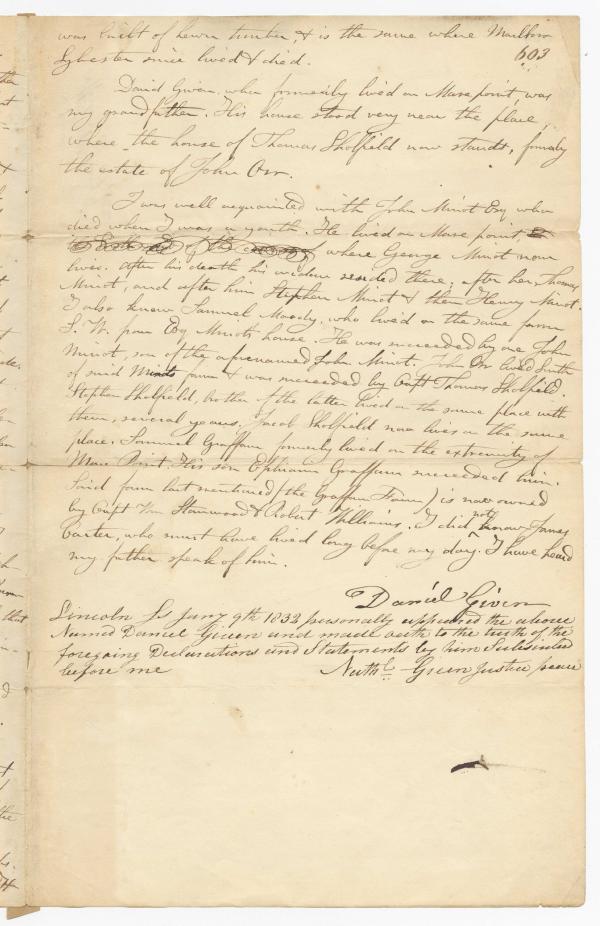 was built of hewn timber, & is the same where
Sylvester since lived & died.
603
David Given, who formerly lived on Mare point, was
my grandfather. His house stood very near the place,
where the house of Thomas Sholfield now stands, formerly
the estate of John Orr.
I was well acquainted with John Minot Esq who
died when I was a youth. He lived on Mare point,
where George Minot now
lives. After his death his widow resided there; after her, Thomas
Minot, and after him Stephen Minot & then Henry Minot.
I also knew Samuel Moody, who lived on the same farm
S. W. from Esq Minots house. He was succeeded by one John
Minot, son of the aforenamed John Minot. John Orr lived South
of said Minots farm & was succeeded by Capt Thomas Sholfield.
Stephen Sholfield, brother of the latter lived on the same place with
them, several years. Jacob Sholfield now lives on the same
place. Samuel Graffam formerly lived on the extremity of
Mare Point. His son Ephraim Graffam succeeded him.
Said farm last mentioned (the Graffam Farm) is now owned
by Capt Wm Stanwood & Robert Williams. I did not know James
Carter, who must have lived long before my day. I have heard
my father speak of him.
Daniel Given
Lincoln Ss Jany 9th 1833 personally appeared the above
Named Daniel Given and made oath to the truth of the
foregoing Declarations and Statements by him Subscribed
before me Nathl Green Justice peace